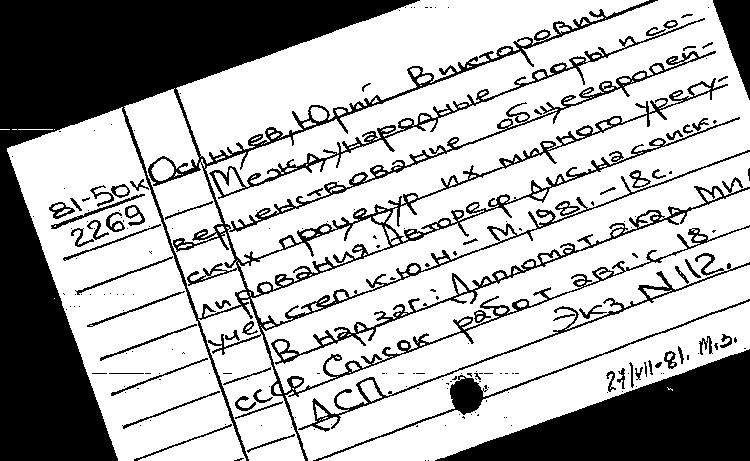 Осинцев, Юрий Викторович.
81-50к
2269
Международные споры и со-
вершенствование общеевропей-
ских процедур их мирного урегу-
лирования: Автореф. дис. на соиск.
учен. степ. к.ю.н. - М., 1981. - 18 с.
В надзаг.: Дипломат. акад МИД
СССР. Список работ авт.: с 18.
ДСП. Экз. N 112.
27/VII-81. М.З.